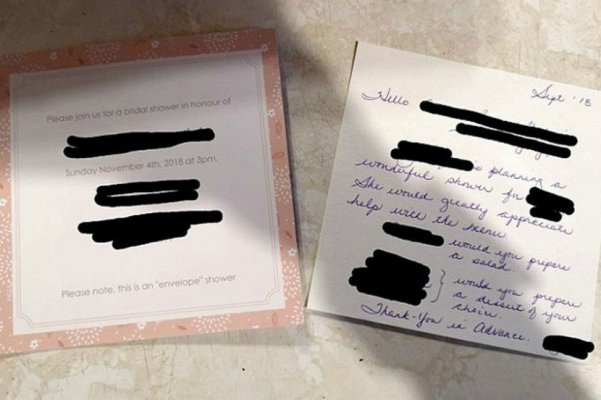 Please join us for a bridal shower in honour of
Sunday November 4th, 2018 at 3pm.
Please note, this is an "envelope" shower
Sept '18
Hello
is planning a
wonderful shower for
She would greatly appreciate
help with the menu.
would you prepare
a salad.
would you prepare
a dessert of your
choice.
Thank-You in Advance.